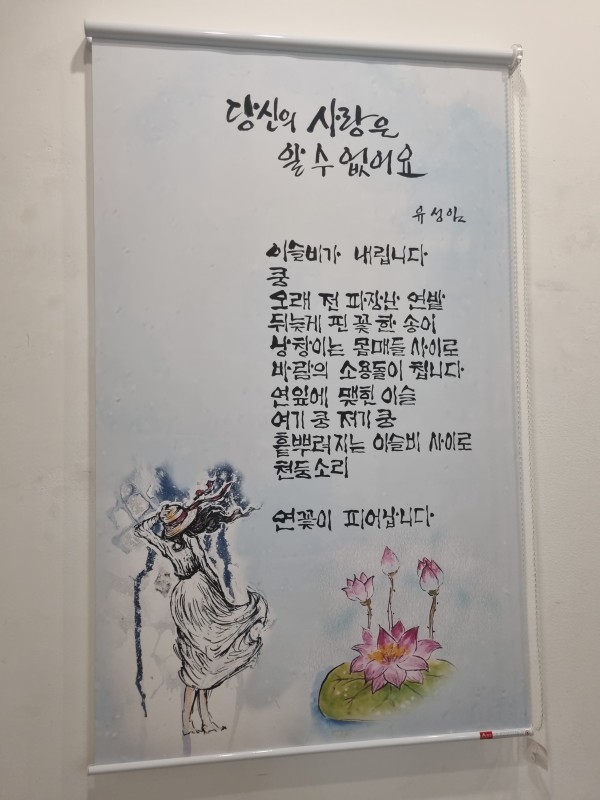 당신의 사랑은
알 수 없어요
유성임
이슬비가 내립니다
쿵
오래 전 파장난 연밭
뒤늦게 핀 꽃 한 송이
낭창이는 몸매들 사이로
바람의 소용돌이 칩니다
연잎에 맺힌 이슬
여기 콩 저기 쿵
흩뿌려지는 이슬비 사이로
천둥소리
연꽃이 피어납니다